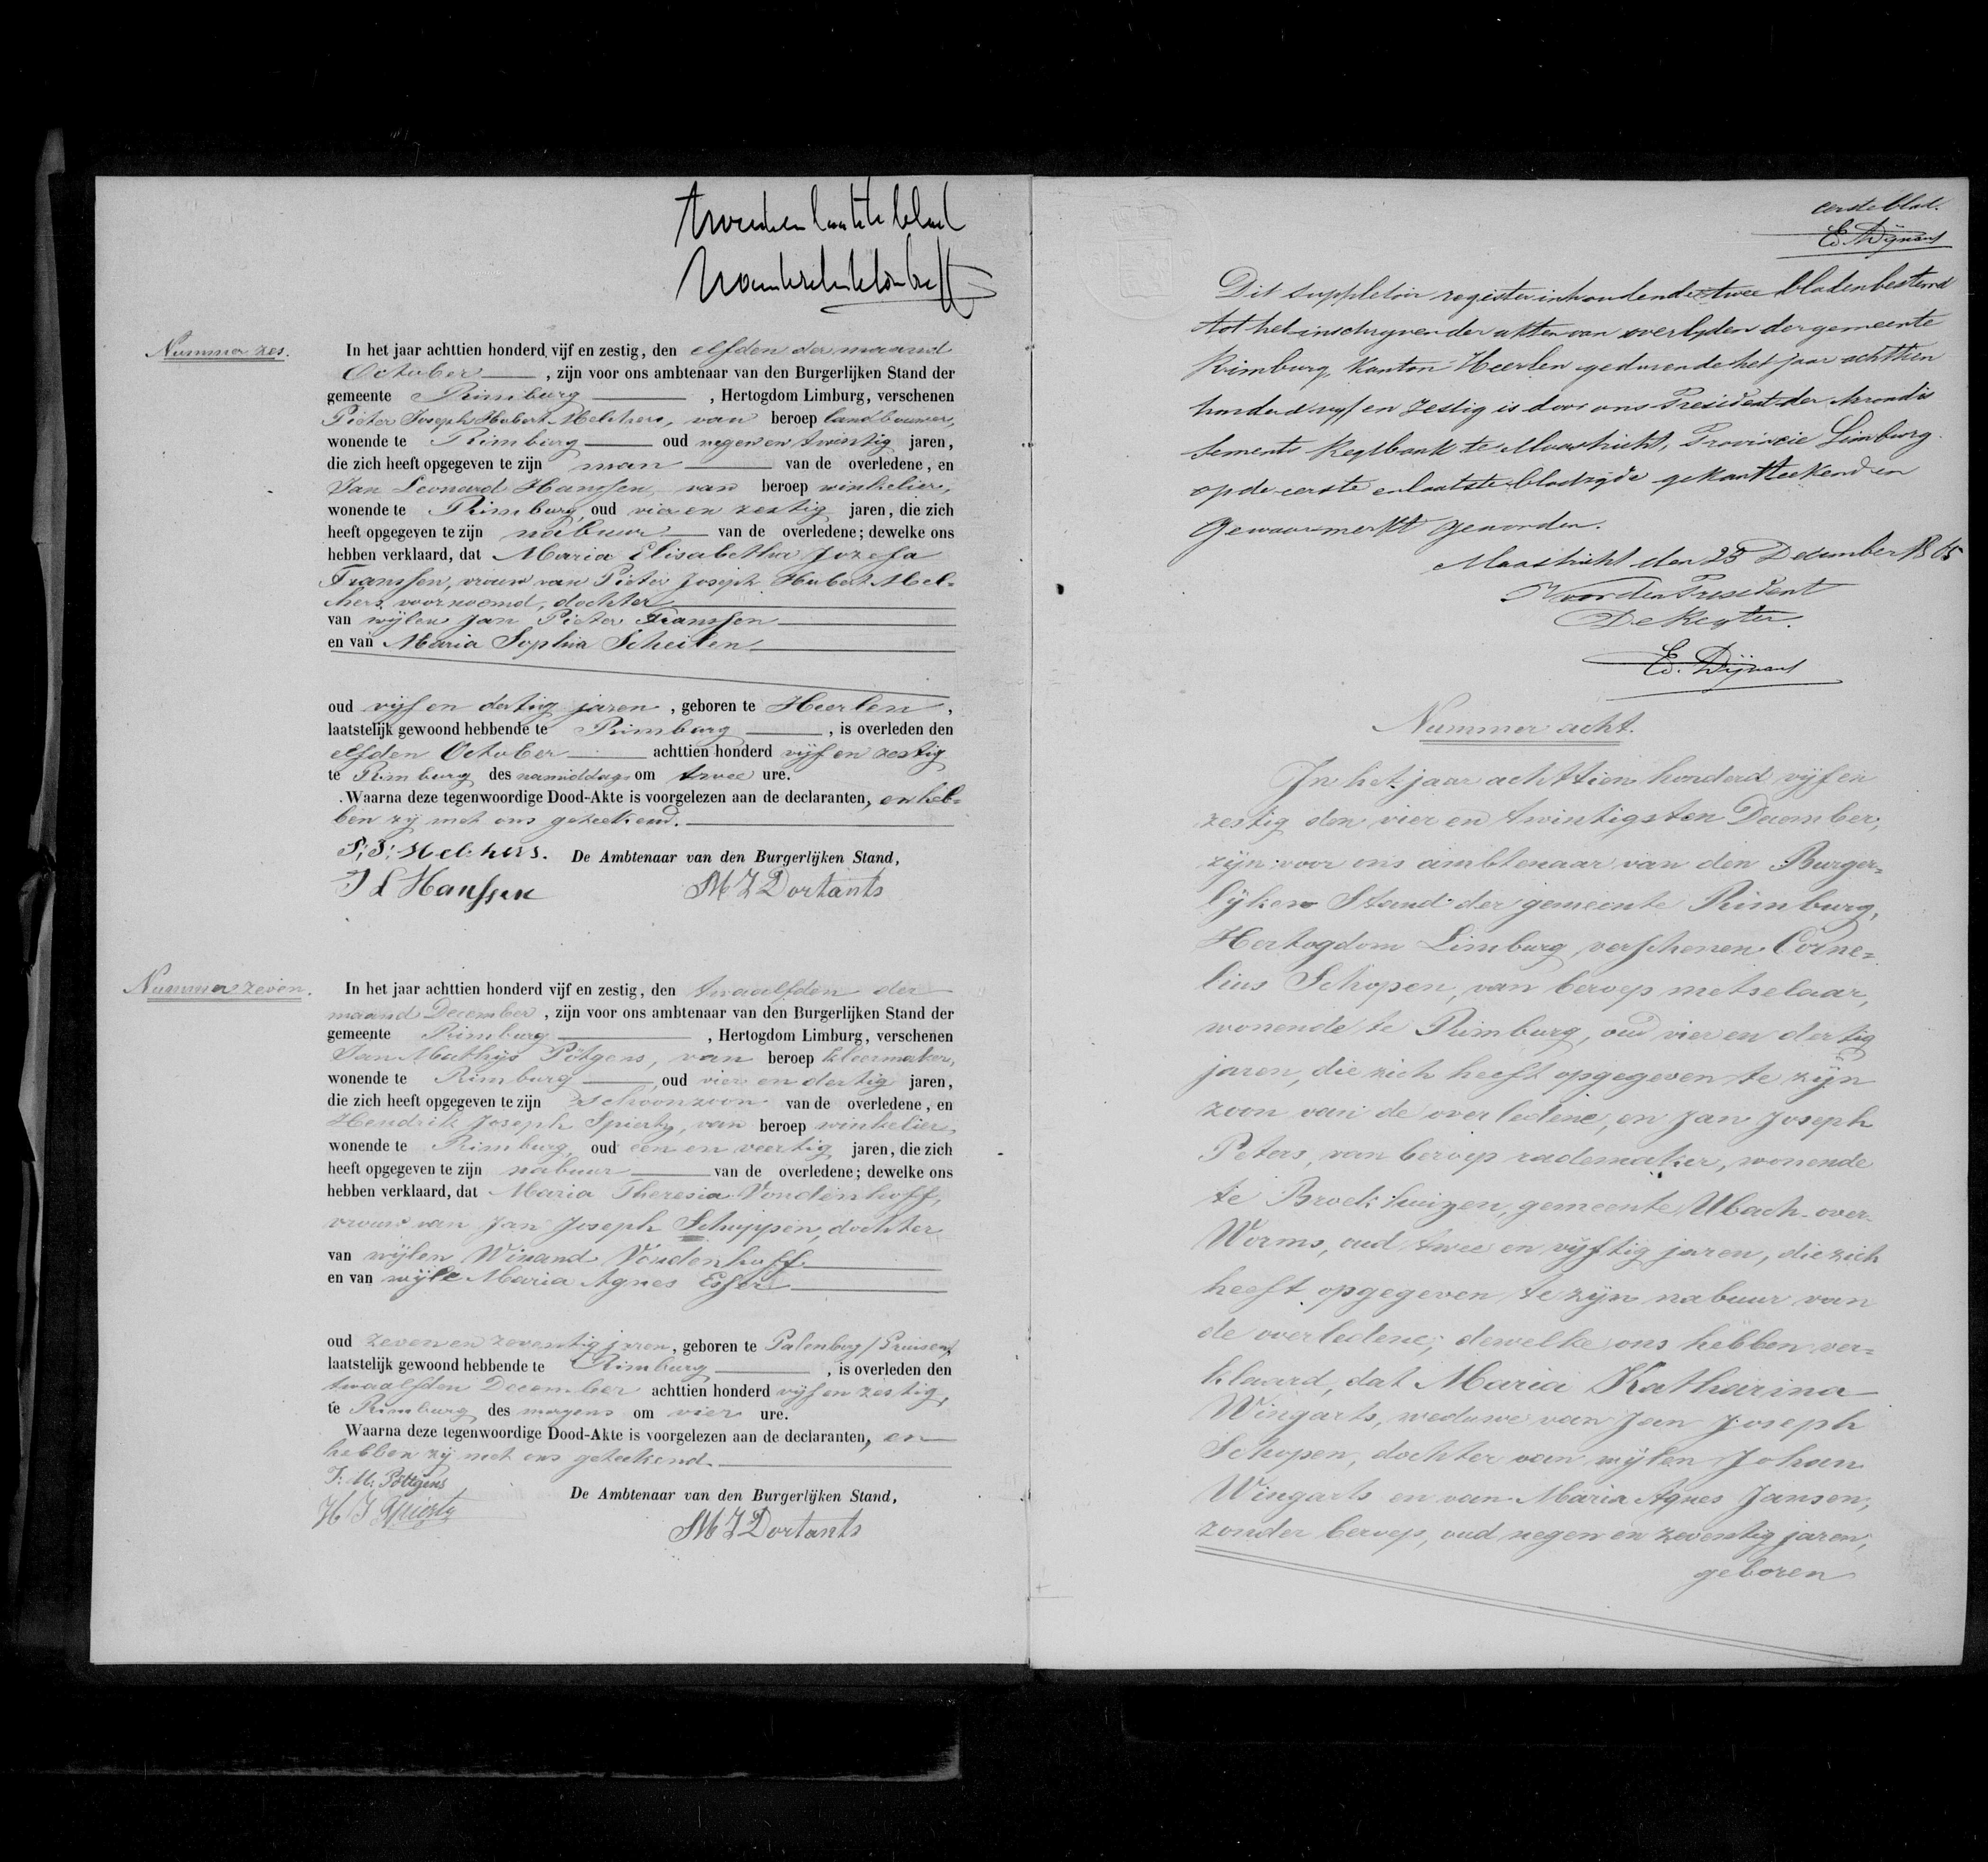 tweede en laatste blad
Nummer zes.
In het jaar achttien honderd vijf en zestig, den elfden der maand
October, zijn voor ons ambtenaar van den Burgerlijken Stand der
gemeente Rimburg, Hertogdom Limburg, verschenen
Pieter Joseph Hubert Melchers, van beroep landbouwer,
wonende te Rimburg oud negen en twintig jaren,
die zich heeft opgegeven te zijn man van de overledene, en
Jan Leonard Hanssen, van beroep winkelier,
wonende te Rimburg, oud vier en zestig jaren, die zich
heeft opgegeven te zijn nabuur van de overledene; dewelke ons
hebben verklaard, dat Maria Elisabetha Jozefa
Franssen, vrouw van Pieter Joseph Hubert Mel-
chers voornoemd, dochter
van wijlen Jan Pieter Franssen
en van Maria Sophia Scheilen
oud vijf en dertig jaren, geboren te Heerlen,
laatstelijk gewoond hebbende te Rimburg, is overleden den
elfden October achttien honderd vijf en zestig
te Rimburg des namiddags om twee ure.
Waarna deze tegenwoordige Dood-Akte is voorgelezen aan de declaranten, en heb-
ben zij met ons geteekend.
P: J: Melchers. De Ambtenaar van den Burgerlijken Stand,
J L Hanssen M J Dortants
Nummer zeven.
In het jaar achttien honderd vijf en zestig, den twaalfden der
maand December, zijn voor ons ambtenaar van den Burgerlijken Stand der
gemeente Rimburg, Hertogdom Limburg, verschenen
Jan Mathijs Pötgens, van beroep kleermaker,
wonende te Rimburg, oud vier en dertig jaren,
die zich heeft opgegeven te zijn schoonzoon van de overledene, en
Hendrik Joseph Spierty, van beroep winkelier,
wonende te Rimburg, oud een en veertig jaren, die zich
heeft opgegeven te zijn nabuur van de overledene; dewelke ons
hebben verklaard, dat Maria Theresia Vondenhoff,
vrouw van Jan Joseph Schuppen, dochter
van wijlen Winand Vondenhoff
en van wijle Maria Agnes Esser
oud zeven en zeventig jaren, geboren te Palenberg / Pruisen/
laatstelijk gewoond hebbende te Rimburg, is overleden den
twaalfden December achttien honderd vijf en zestig,
te Rimburg des morgens om vier ure.
Waarna deze tegenwoordige Dood-Akte is voorgelezen aan de declaranten, en
hebben zij met ons geteekend.
J: M: Pöttgens
De Ambtenaar van den Burgerlijken Stand,
H J Spierty
M J Dortants
eerste blad.
Ed. Dijnans
Dit suppletoir register inhoudende twee bladen bestemd
tot het inschryven der akten van overlyden der gemeente
Rimburg, Kanton Heerlen gedurende het jaar achttien
honderd vyf en Zestig is door ons President der Arrondis
sements Regtbank te Maastricht, Provincie Limburg
op de eerste en laatste bladzyde gekantteekend en
gewaarmerkt geworden.
Maastricht den 23 December 1865
Voor den President
De Regter.
Ed. Dijnans
Nummer acht.
In het jaar achttien honderd vijf en
zestig den vier en twintigsten December,
zijn voor ons ambtenaar van den Burger=
lijken Stand der gemeente Rimburg,
Hertogdom Limburg, verschenen Corne=
lius Schopen, van beroep metselaar,
wonende te Rimburg, oud vier en dertig
jaren, die zich heeft opgegeven te zijn
zoon van de overledene, en Jan Joseph
Peters, van beroep rademaker, wonende
te Broekhuizen, gemeente Ubach-over-
Worms, oud twee en vijftig jaren, die zich
heeft opgegeven te zijn nabuur van
de overledene; dewelke ons hebben ver=
klaard, dat Maria Katharina
Wingarts, weduwe van Jan Joseph
Schopen, dochter van wijlen Johan
Wingarts en van Maria Agnes Jansen,
zonder beroep, oud negen en zeventig jaren,
geboren